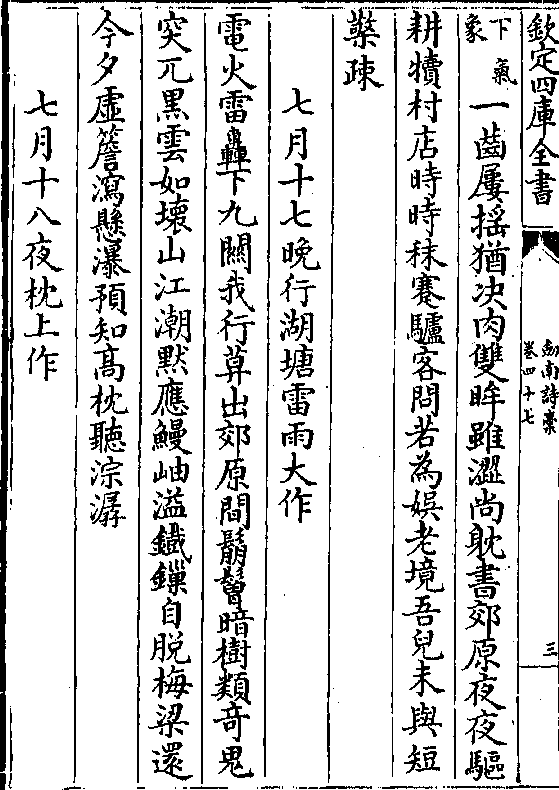 欽定四庫全書
劍南詩槀
卷四十七
三
下氣
象
一齒屢揺猶决肉雙眸雖澀尚躭書郊原夜夜驅
耕犢村店時時秣蹇驢客問若為娛老境吾兒耒與短
檠疎
七月十七晚行湖塘雷雨大作
電火雷轟下九闗我行草出郊原間鬅鬙暗樹類奇鬼
突兀黑雲如壊山江潮黙應鰻岫溢鐵鏁自脱梅梁還
今夕虛簷瀉懸瀑預知髙枕聽淙潺
七月十八夜枕上作